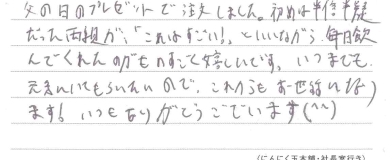 父の日のプレゼントで注文しました。初めは半信半疑
だった両親が、「これはすごい!」といいながら毎日飲
んでくれたのがものすごく嬉しいです。いつまでも
元気でいてもらいたいので、これからもお世話になり
ます!いつもありがとうございます(^^)
(にんにく玉本舗・社長宮行き)